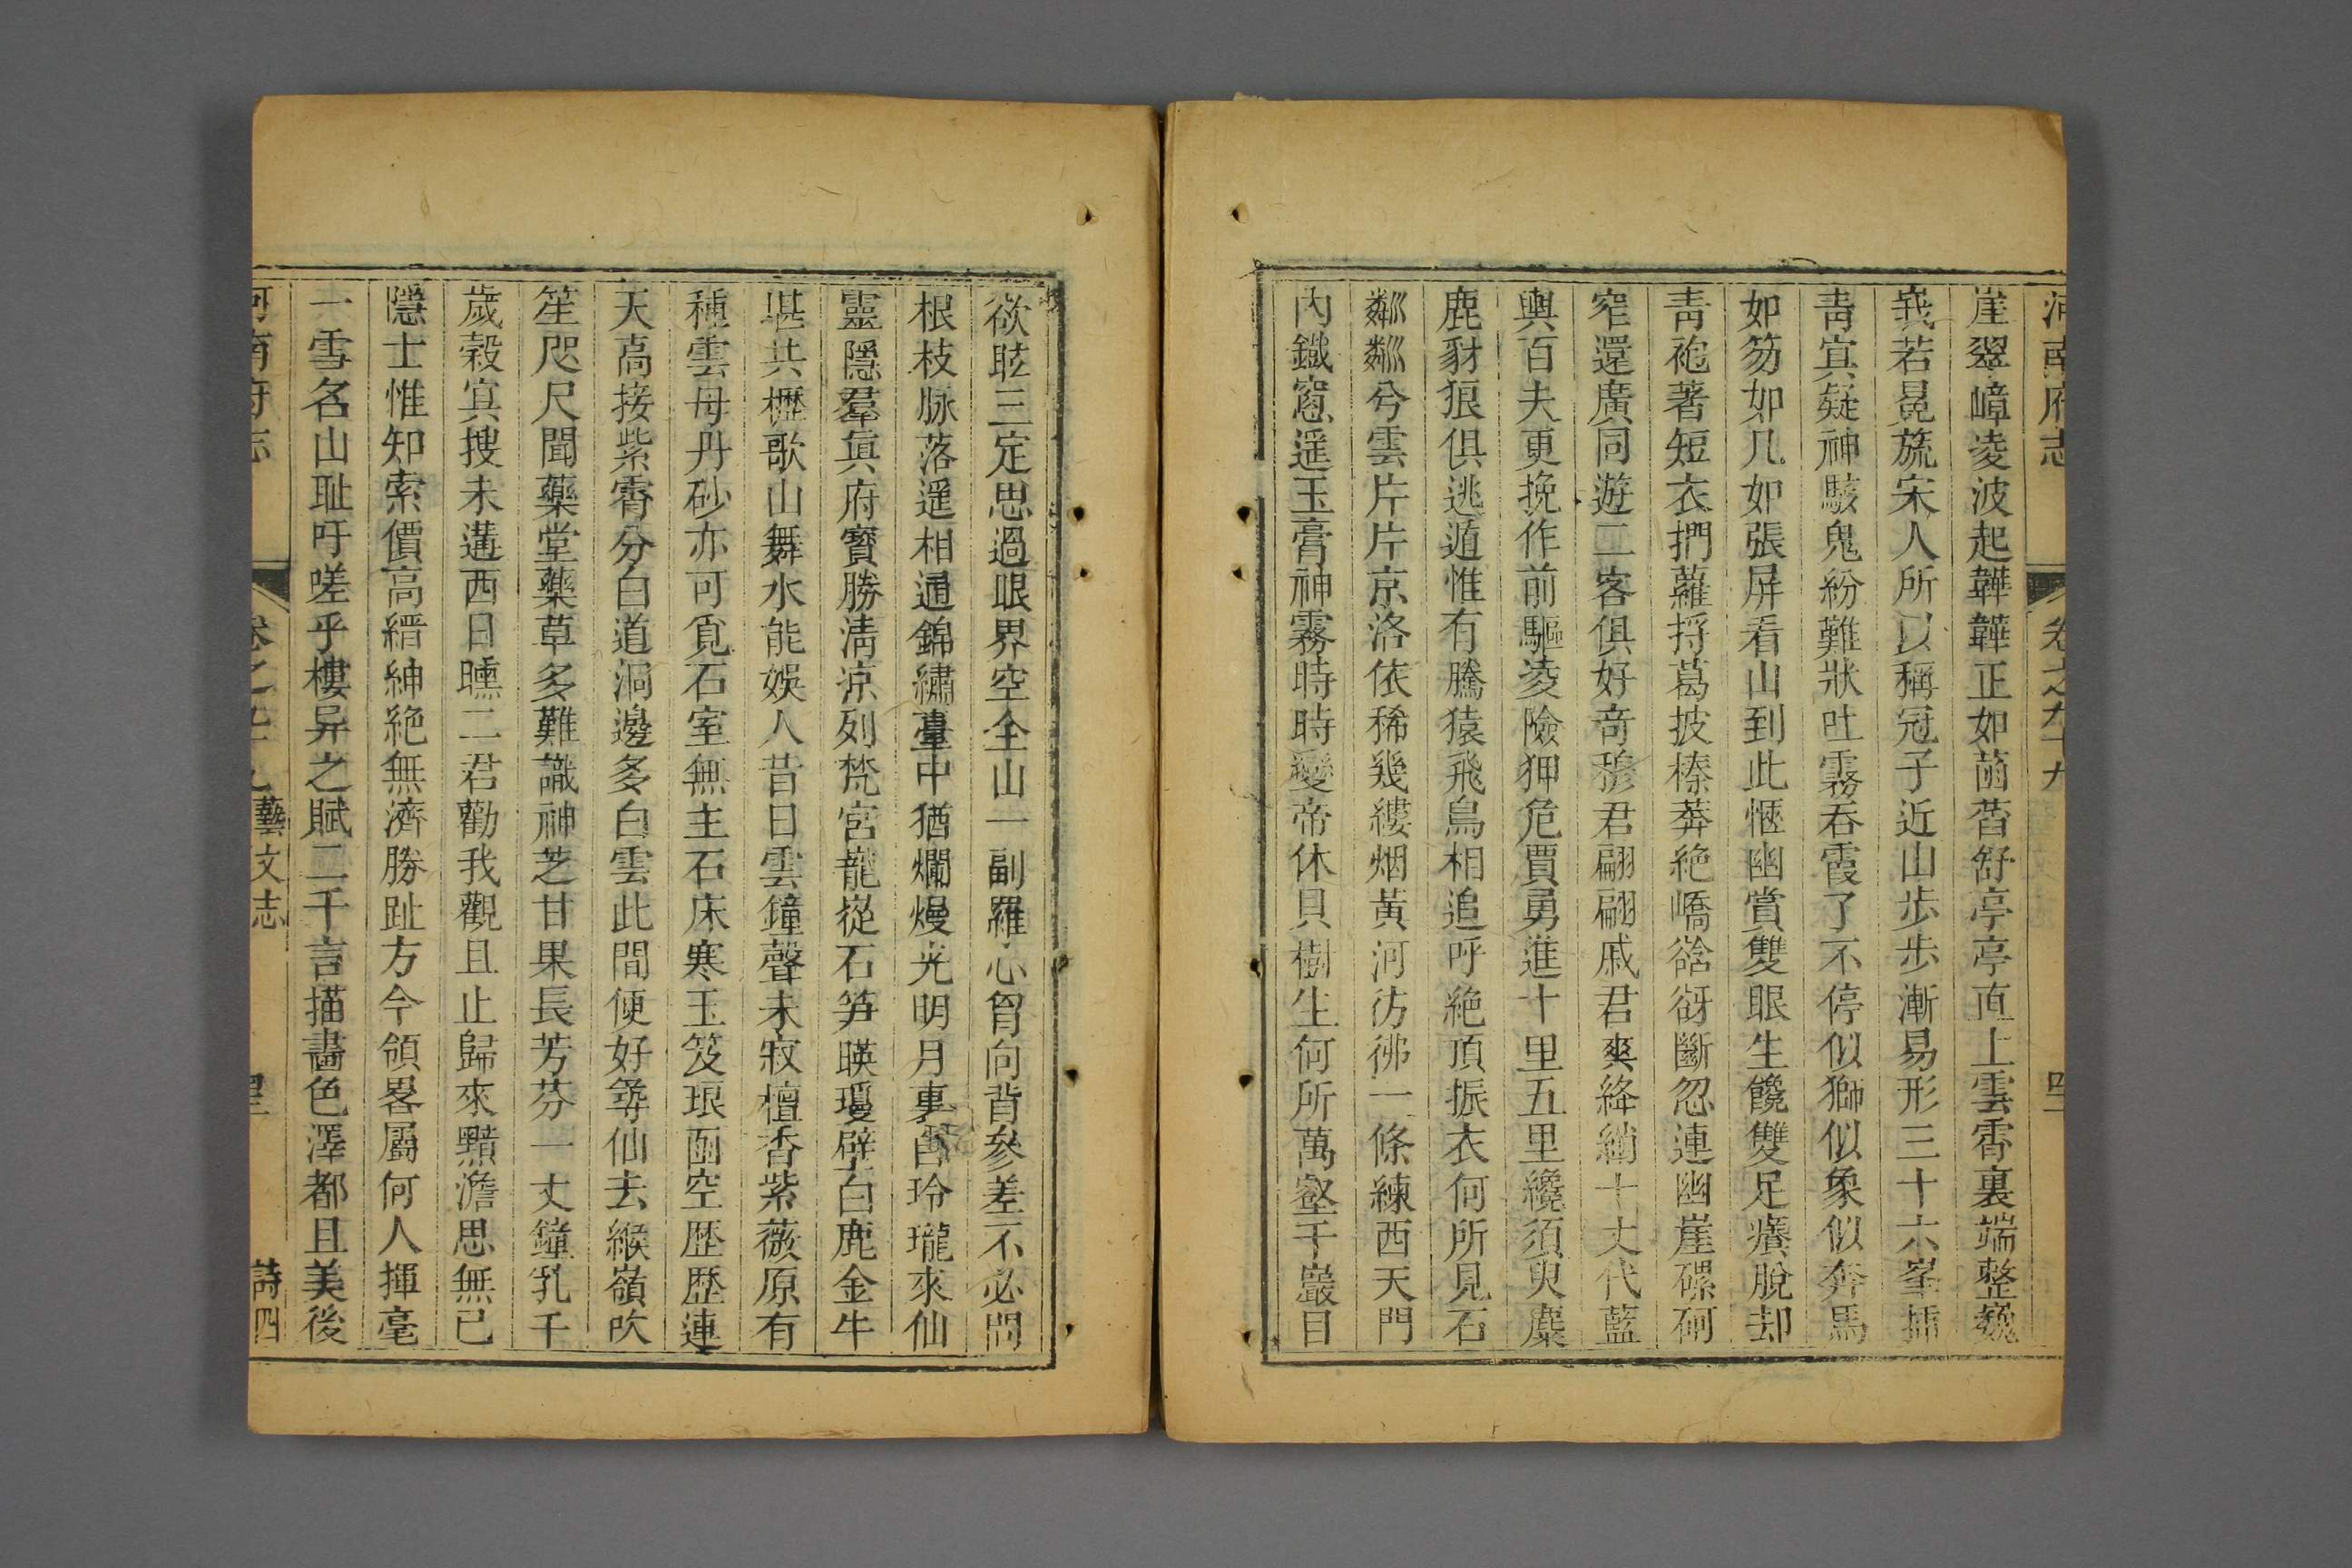 河南府志 卷之九十九
崖翠嶂凌波起韡韡正如菡萏舒亭亭直上雲霄裏端整巍
峩若冕旒宋人所以稱冠子近山步步漸易形三十六峯插
靑冥疑神駭鬼紛難狀吐霧吞霞了不停似獅似象似奔馬
如笏如几如張屏看山到此愜幽賞雙眼生饞雙足癢脫却
靑袍著短衣捫蘿捋葛披榛莽絶嶠谽谺斷忽連幽崖磥砢
窄還廣同遊二客俱好竒穆君翩翩戚君爽絳綃十丈代藍
輿百夫更挽作前驅凌險狎危賈勇進十里五里纔須臾麋
鹿豺狼俱逃遁惟有騰猿飛鳥相追呼絶頂振衣何所見石
粼粼兮雲片片京洛依稀幾縷烟黃河彷彿一條練西天門
內鐵窻遥玉膏神霧時時變帝休貝樹生何所萬壑千巖目
欲眩三定思過眼界空全山一副羅心胷向背參差不必問
根枝脉落遥相通錦繡臺中猶爛熳光明月裏自玲瓏來仙
靈隱羣眞府寳勝淸凉列梵宮巃嵸石笋暎瓊壁白鹿金牛
堪共櫪歌山舞水能娛人昔日雲鐘聲未寂檀香紫薇原有
種雲母丹砂亦可覓石室無主石床寒玉笈琅函空歷歷連
天高接紫霄分白道洞邊多白雲此間便好尋仙去緱嶺吹
笙咫尺聞藥堂藥草多難識神芝甘果長芳芬一丈鐘乳千
歲穀冥搜未遘西日曛二君勸我觀且止歸來黯澹思無已
隱士惟知索價高縉紳絶無濟勝趾方今領畧屬何人揮毫
一雪名山耻吁嗟乎樓异之賦二千言描畵色澤都且美後
河南府志 卷之九十九 藝文志 詩四